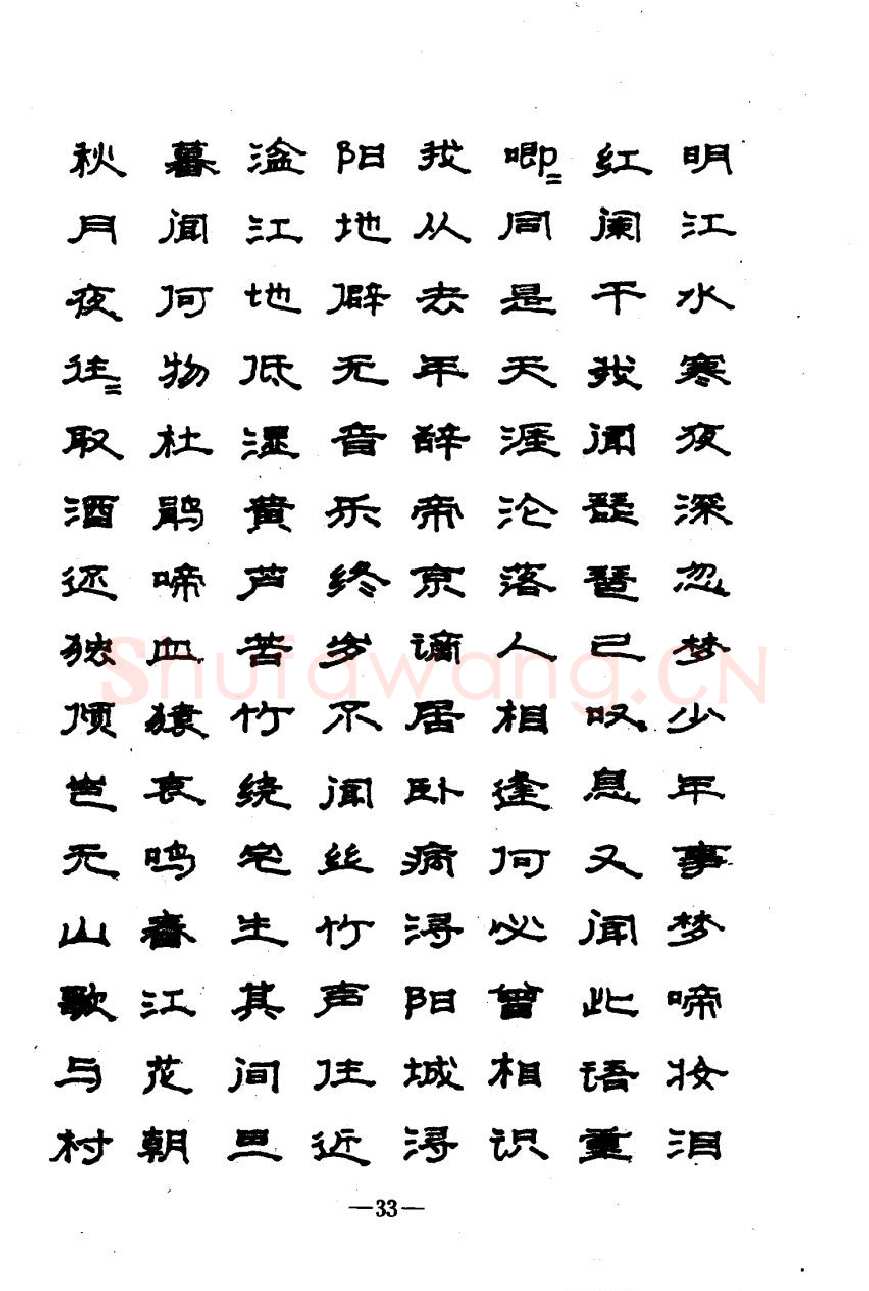 明江水寒夜深忽梦少年事梦啼妆泪
红阑干我闻琵琶已叹息又闻此语重
唧=同是天涯沦落人相逢何必曾相识
我从去年辞帝京谪居卧病浔阳城浔
阳地僻无音乐终岁不闻丝竹声住近
湓江地低湿黄芦苦竹绕宅生其间旦
暮闻何物杜鹃啼血猿哀鸣春江花朝
秋月夜往=取酒还独倾岂无山歌与村
—33—
Shufawang.CN